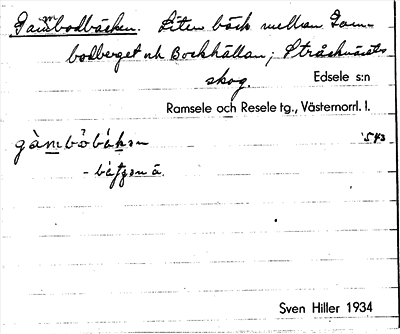 Gammbodbäcken. Liten bäck mellan Gam-
bodberget och Bockhällan; Stråsknäsets
skog. Edsele s:n
Ramsele och Resele tg., Västernorrl. l.
543
Sven Hiller 1934